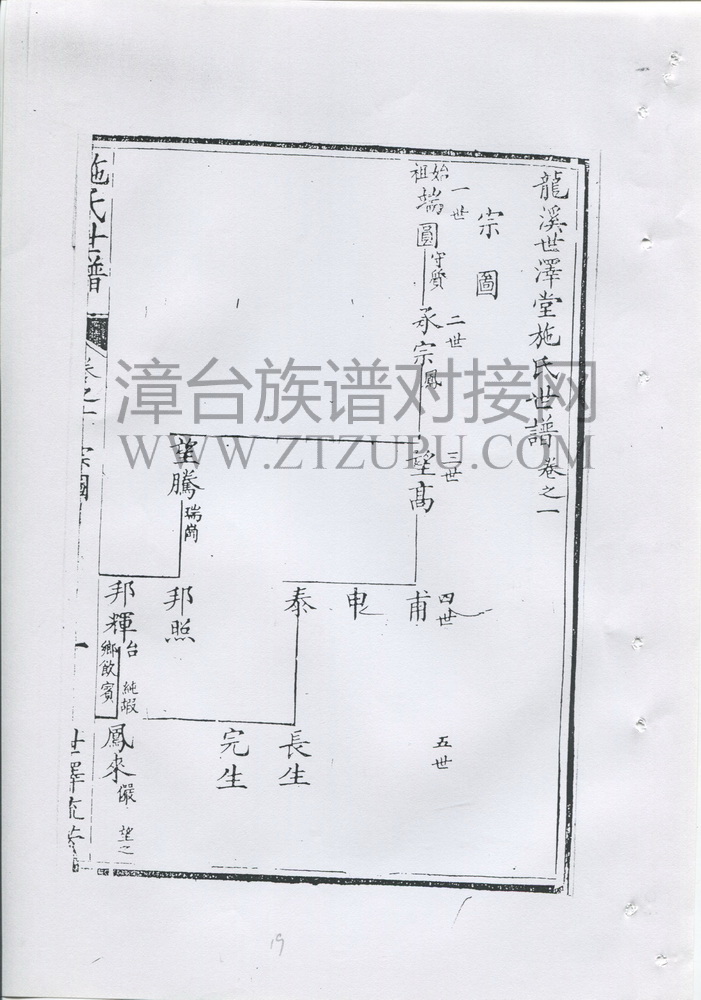 龍溪世澤堂施氏世譜卷之一
宗圖
一世
始祖端圓守質
二世
承宗鳳
三世
望高
望騰瑞崗
四世
甫
申
泰
邦照
邦輝台純嘏
鄉飲賓
五世
長生
完生
鳳來儼望之
施氏世譜
卷之一 宗圖
一
世澤流
漳台族谱对接网
WWW.ZTZUPU.COM
19